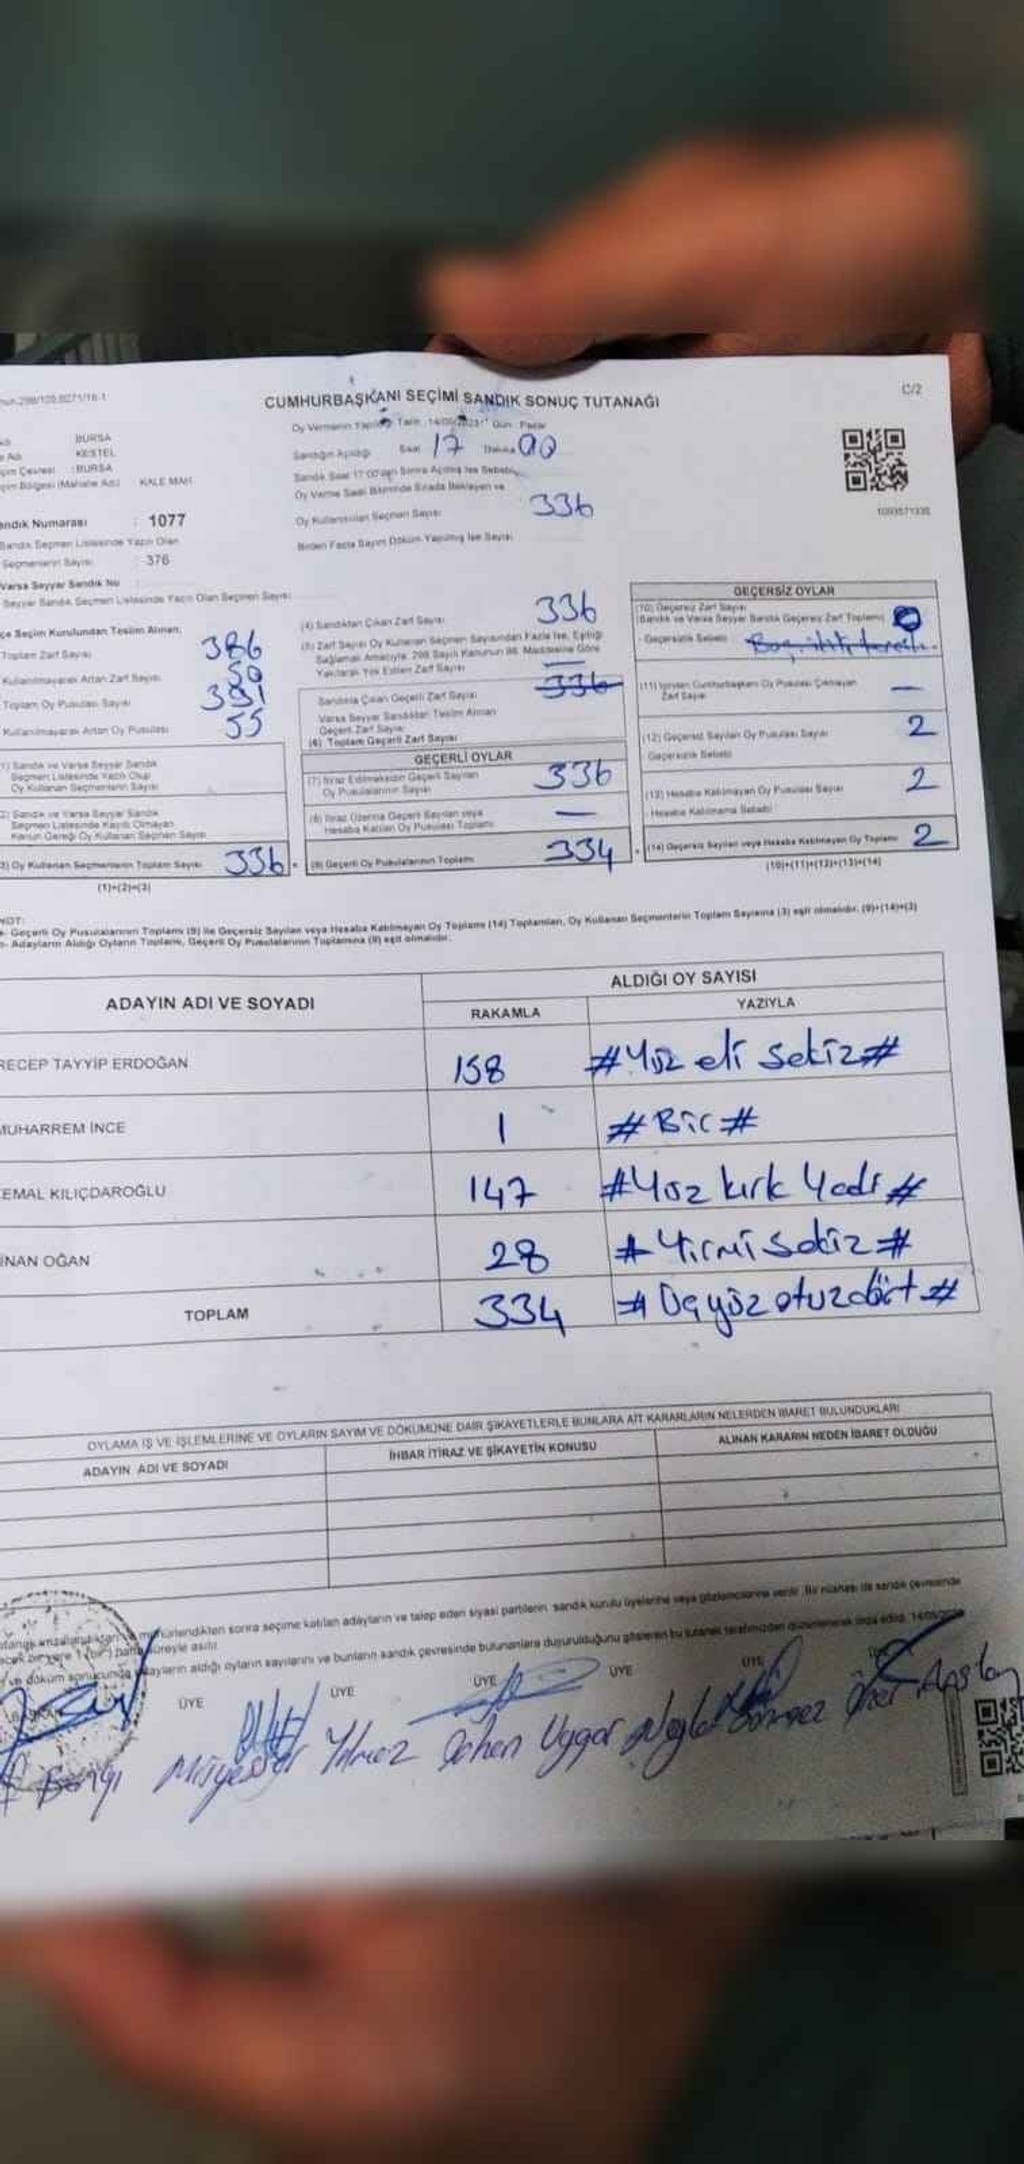 C/2
CUMHURBAŞKANI SEÇİMİ SANDIK SONUÇ TUTANAĞI
BURSA
KESTEL
BURSA
KALE MAH
Sandığın Açıldığı Saat 17 Dakika 00
Oy Kullanılan Seçmen Sayısı 336
Birden Fazla Sayım Döküm Yapılmış İse Sayısı
andık Numarası : 1077
Sandık Seçmen Listesinde Yazılı Olan
Seçmenlerin Sayısı : 376
Varsa Seyyar Sandık No
Seyyar Sandık Seçmen Listesinde Yazılı Olan Seçmen Sayısı
çe Seçim Kurulundan Teslim Alınan:
Toplam Zarf Sayısı 386
Kullanılmayarak Artan Zarf Sayısı 50
Toplam Oy Pusulası Sayısı 391
Kullanılmayarak Artan Oy Pusulası 55
1) Sandık ve Varsa Seyyar Sandık
Seçmen Listesinde Yazılı Olup
Oy Kullanan Seçmenlerin Sayısı
2) Sandık ve Varsa Seyyar Sandık
Seçmen Listesinde Kayıtlı Olmayan
Kanun Gereği Oy Kullanan Seçmen Sayısı
3) Oy Kullanan Seçmenlerin Toplam Sayısı 336
(1)+(2)=(3)
(4) Sandıktan Çıkan Zarf Sayısı 336
(5) Zarf Sayısı Oy Kullanan Seçmen Sayısından Fazla İse, Eşitliği
Sağlamak Amacıyla, 298 Sayılı Kanunun 98. Maddesine Göre
Yakılarak Yok Edilen Zarf Sayısı —
Sandıkta Çıkan Geçerli Zarf Sayısı 336
Varsa Seyyar Sandıktan Teslim Alınan
Geçerli Zarf Sayısı
(6) Toplam Geçerli Zarf Sayısı
GEÇERLİ OYLAR
(7) İtiraz Edilmeksizin Geçerli Sayılan
Oy Pusulalarının Sayısı 336
(8) İtiraz Üzerine Geçerli Sayılan veya
Hesaba Katılan Oy Pusulası Toplamı —
(9) Geçerli Oy Pusulalarının Toplamı 334
GEÇERSİZ OYLAR
(10) Geçersiz Zarf Sayısı
(Sandık ve Varsa Seyyar Sandık Geçersiz Zarf Toplamı)
Geçersizlik Sebebi
(11) İçinden Cumhurbaşkanı Oy Pusulası Çıkmayan
Zarf Sayısı —
(12) Geçersiz Sayılan Oy Pusulası Sayısı 2
Geçersizlik Sebebi
(13) Hesaba Katılmayan Oy Pusulası Sayısı 2
Hesaba Katılmama Sebebi
(14) Geçersiz Sayılan veya Hesaba Katılmayan Oy Toplamı 2
(10)+(11)+(12)+(13)=(14)
NOT:
- Geçerli Oy Pusulalarının Toplamı (9) ile Geçersiz Sayılan veya Hesaba Katılmayan Oy Toplamı (14) Toplamları, Oy Kullanan Seçmenlerin Toplam Sayısına (3) eşit olmalıdır. (9)+(14)=(3)
- Adayların Aldığı Oyların Toplamı, Geçerli Oy Pusulalarının Toplamına (9) eşit olmalıdır.
ADAYIN ADI VE SOYADI ALDIĞI OY SAYISI
RAKAMLA YAZIYLA
RECEP TAYYİP ERDOĞAN 158 #Yüz elli sekiz#
MUHARREM İNCE 1 #Bir#
EMAL KILIÇDAROĞLU 147 #Yüz kırk Yedi#
İNAN OĞAN 28 #Yirmi sekiz#
TOPLAM 334 #Üçyüz otuzdört#
OYLAMA İŞ VE İŞLEMLERİNE VE OYLARIN SAYIM VE DÖKÜMÜNE DAİR ŞİKAYETLERLE BUNLARA AİT KARARLARIN NELERDEN İBARET BULUNDUKLARI
ADAYIN ADI VE SOYADI İHBAR İTİRAZ VE ŞİKAYETİN KONUSU ALINAN KARARIN NEDEN İBARET OLDUĞU
ÜYE ÜYE ÜYE ÜYE ÜYE
Yılmaz Uygar